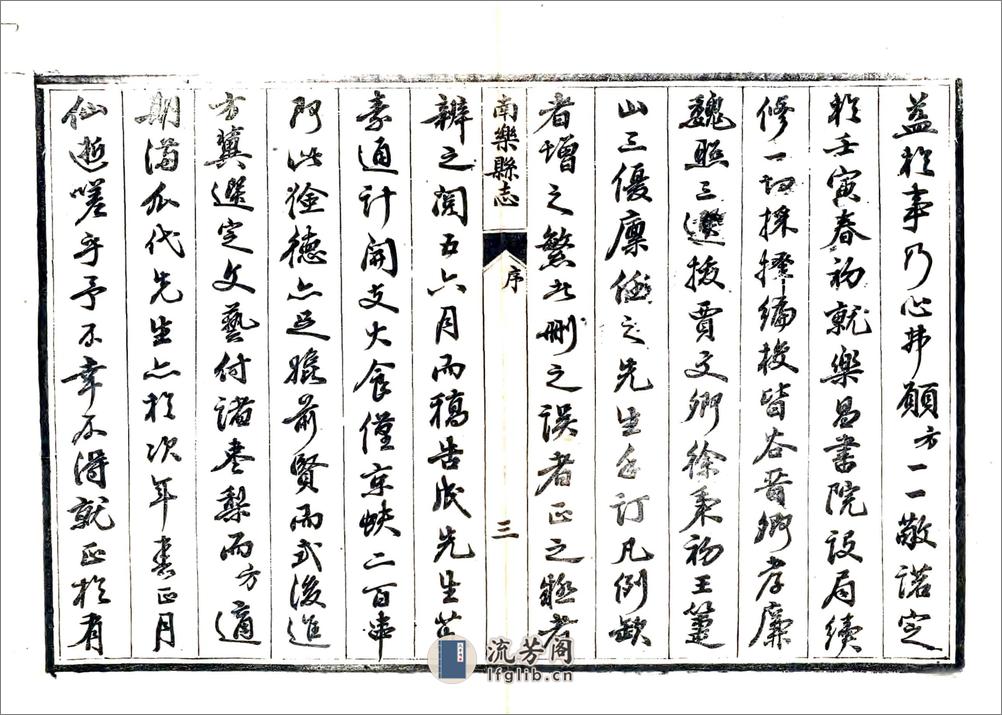 蓋於事乃心弗願方一一敬諾定
於壬寅春初就樂昌書院設局續
修一切採擇編授皆谷晋卿孝廉
魏照三選拔賈文卿徐秉初王篷
山三優廩任之先生手訂凡例缺
者增之繁者刪之誤者正之疑者
辨之閱五六月而稿告成先生
素通計開支火食僅京蚨二百串
阿此徐德亦足媲前賢而式後進
方冀選定文藝付諸棗梨而方適
期滿瓜代先生亦於次年春正月
仙逝嗟乎予不幸不得就正於有
南樂縣志
序
三
流芳阁
lfglib.cn